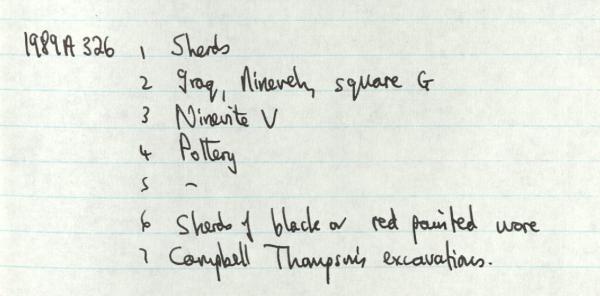 1989A 326 1 Sherds
2 Iraq, Nineveh, square G
3 Ninevite V
4 Pottery
5 –
6 Sherds of black or red painted ware
7 Campbell Thompson's excavations.